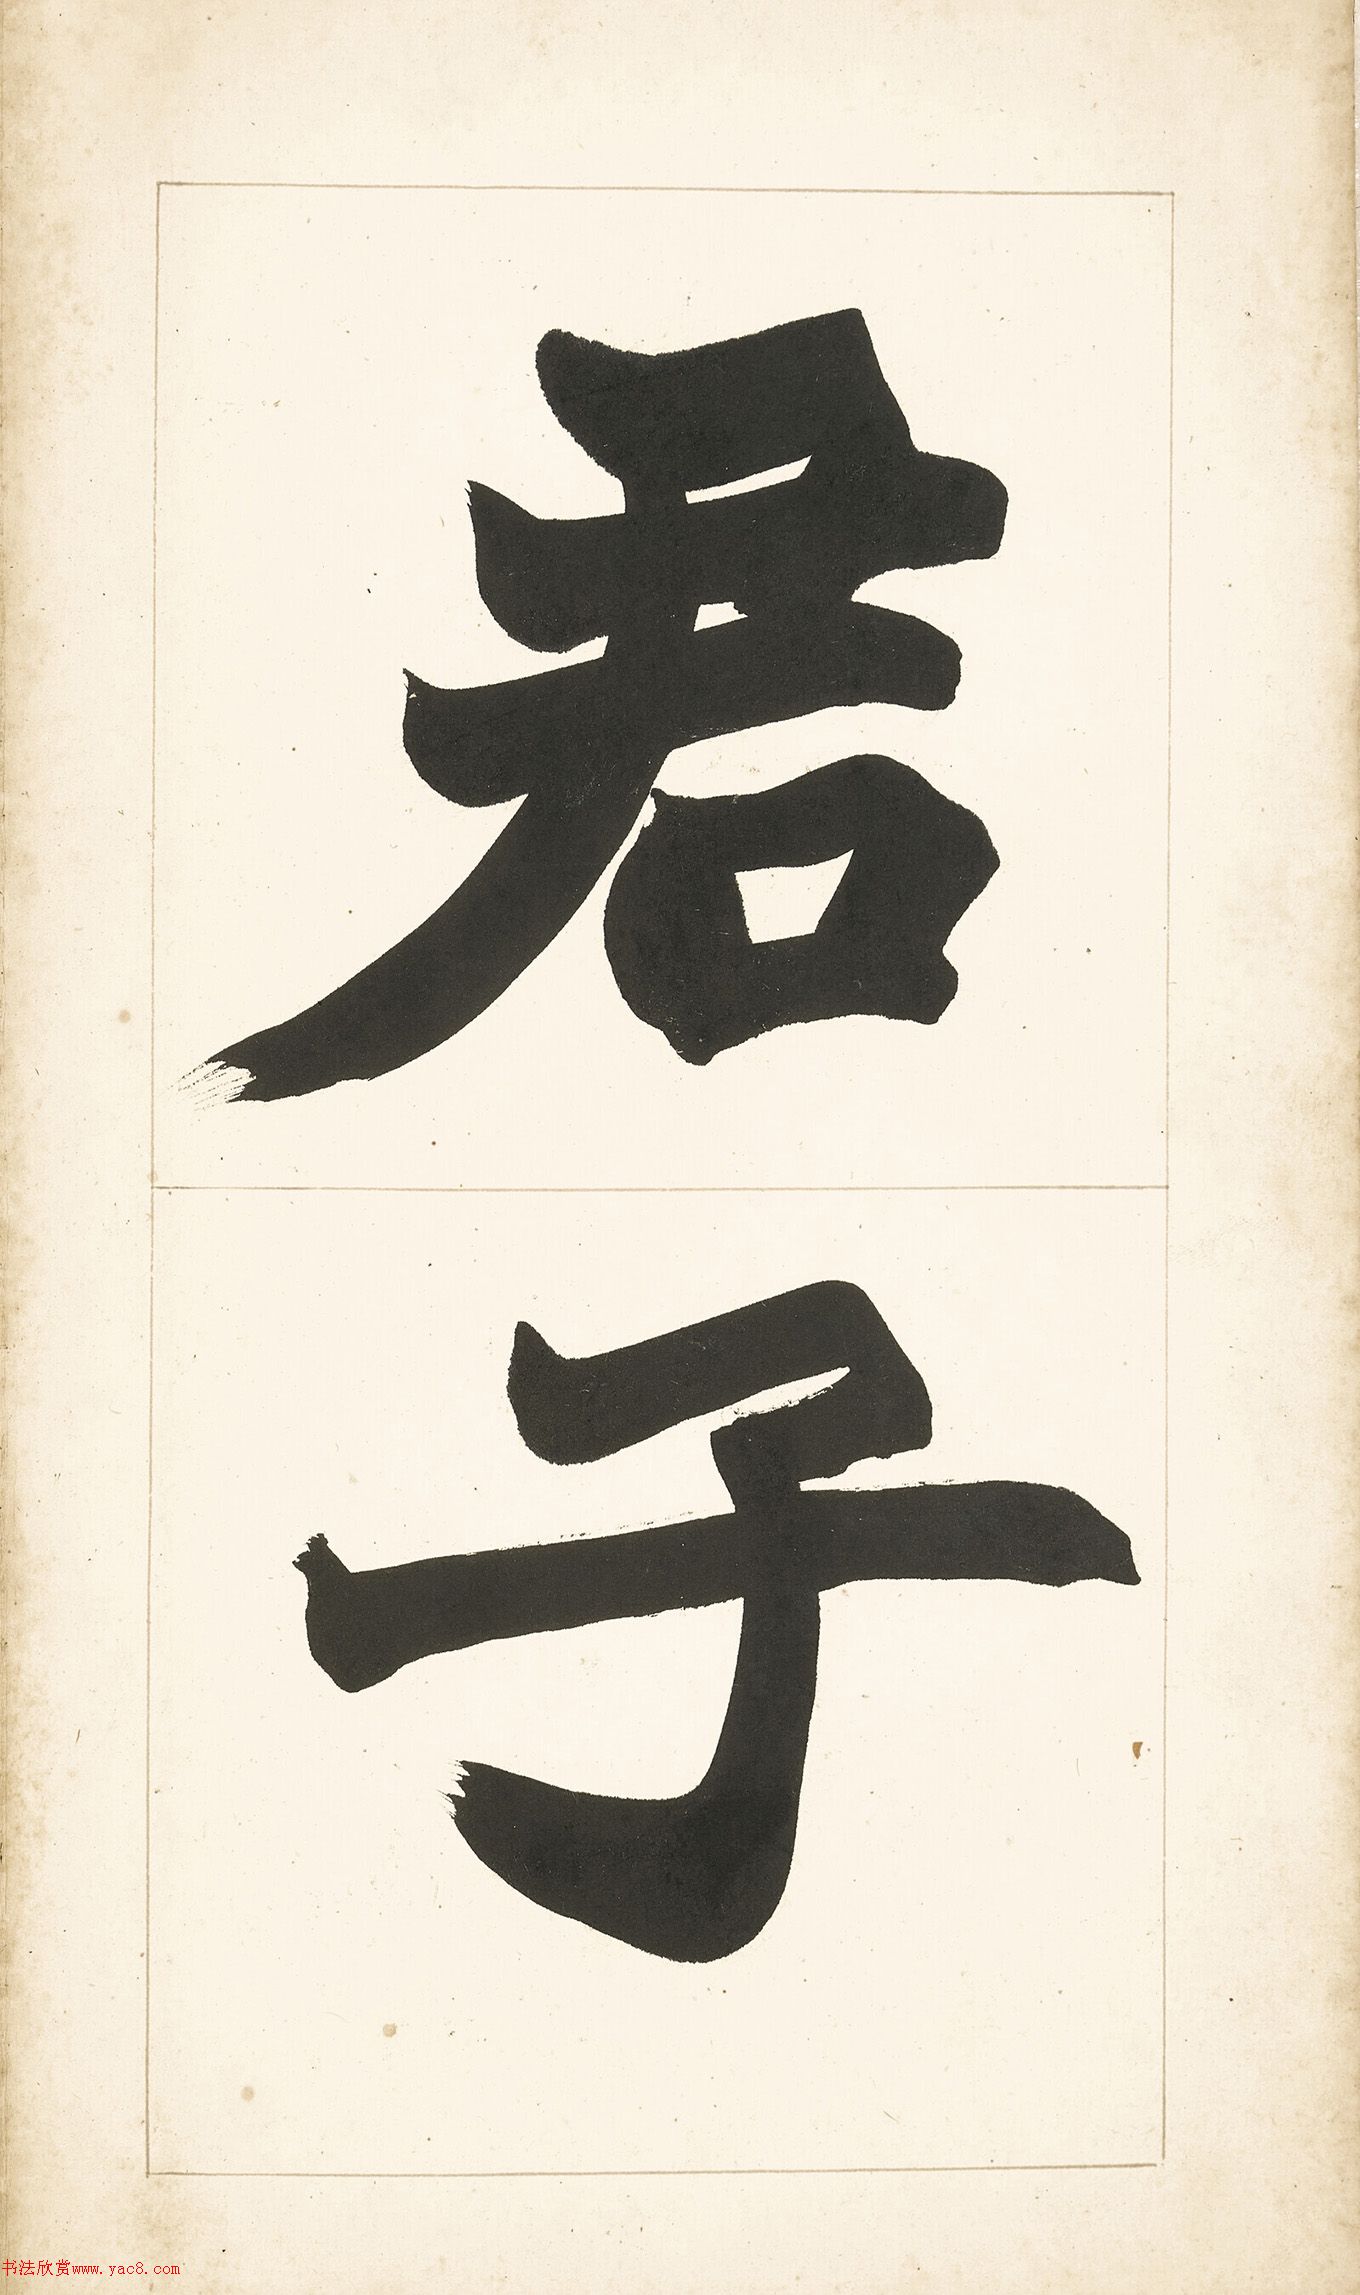 君
子
书法欣赏www.yac8.com